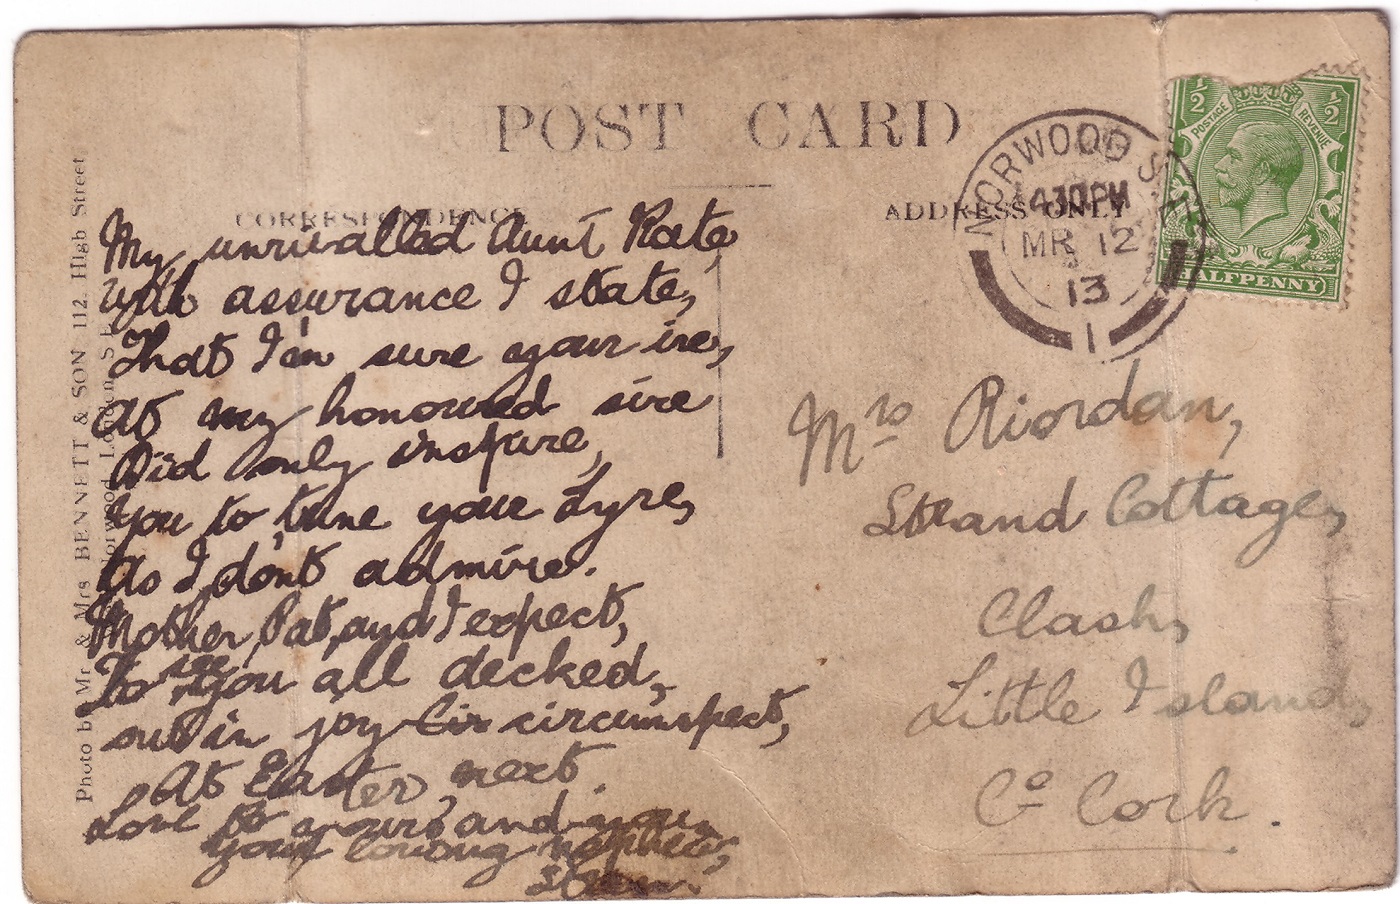 POST CARD
CORRESPONDENCE
ADDRESS ONLY
NORWOOD S.
430PM
MR 12
13
1
1/2 1/2
POSTAGE REVENUE
HALFPENNY
Photo by Mr & Mrs BENNETT & SON 112, High Street
Norwood London S.E.
My unrivalled Aunt Kate,
with assurance I state,
That I'm sure your ire,
At my honoured sire
Did only inspire,
You to tune your Lyre,
As I don't admire.
Mother, Pat, and I expect,
To see you all decked,
out in joy circumspect,
At Easter next.
Love to yours and you
your loving nephew,
Mrs Riordan,
Strand Cottage,
Clash,
Little Island,
Co Cork.